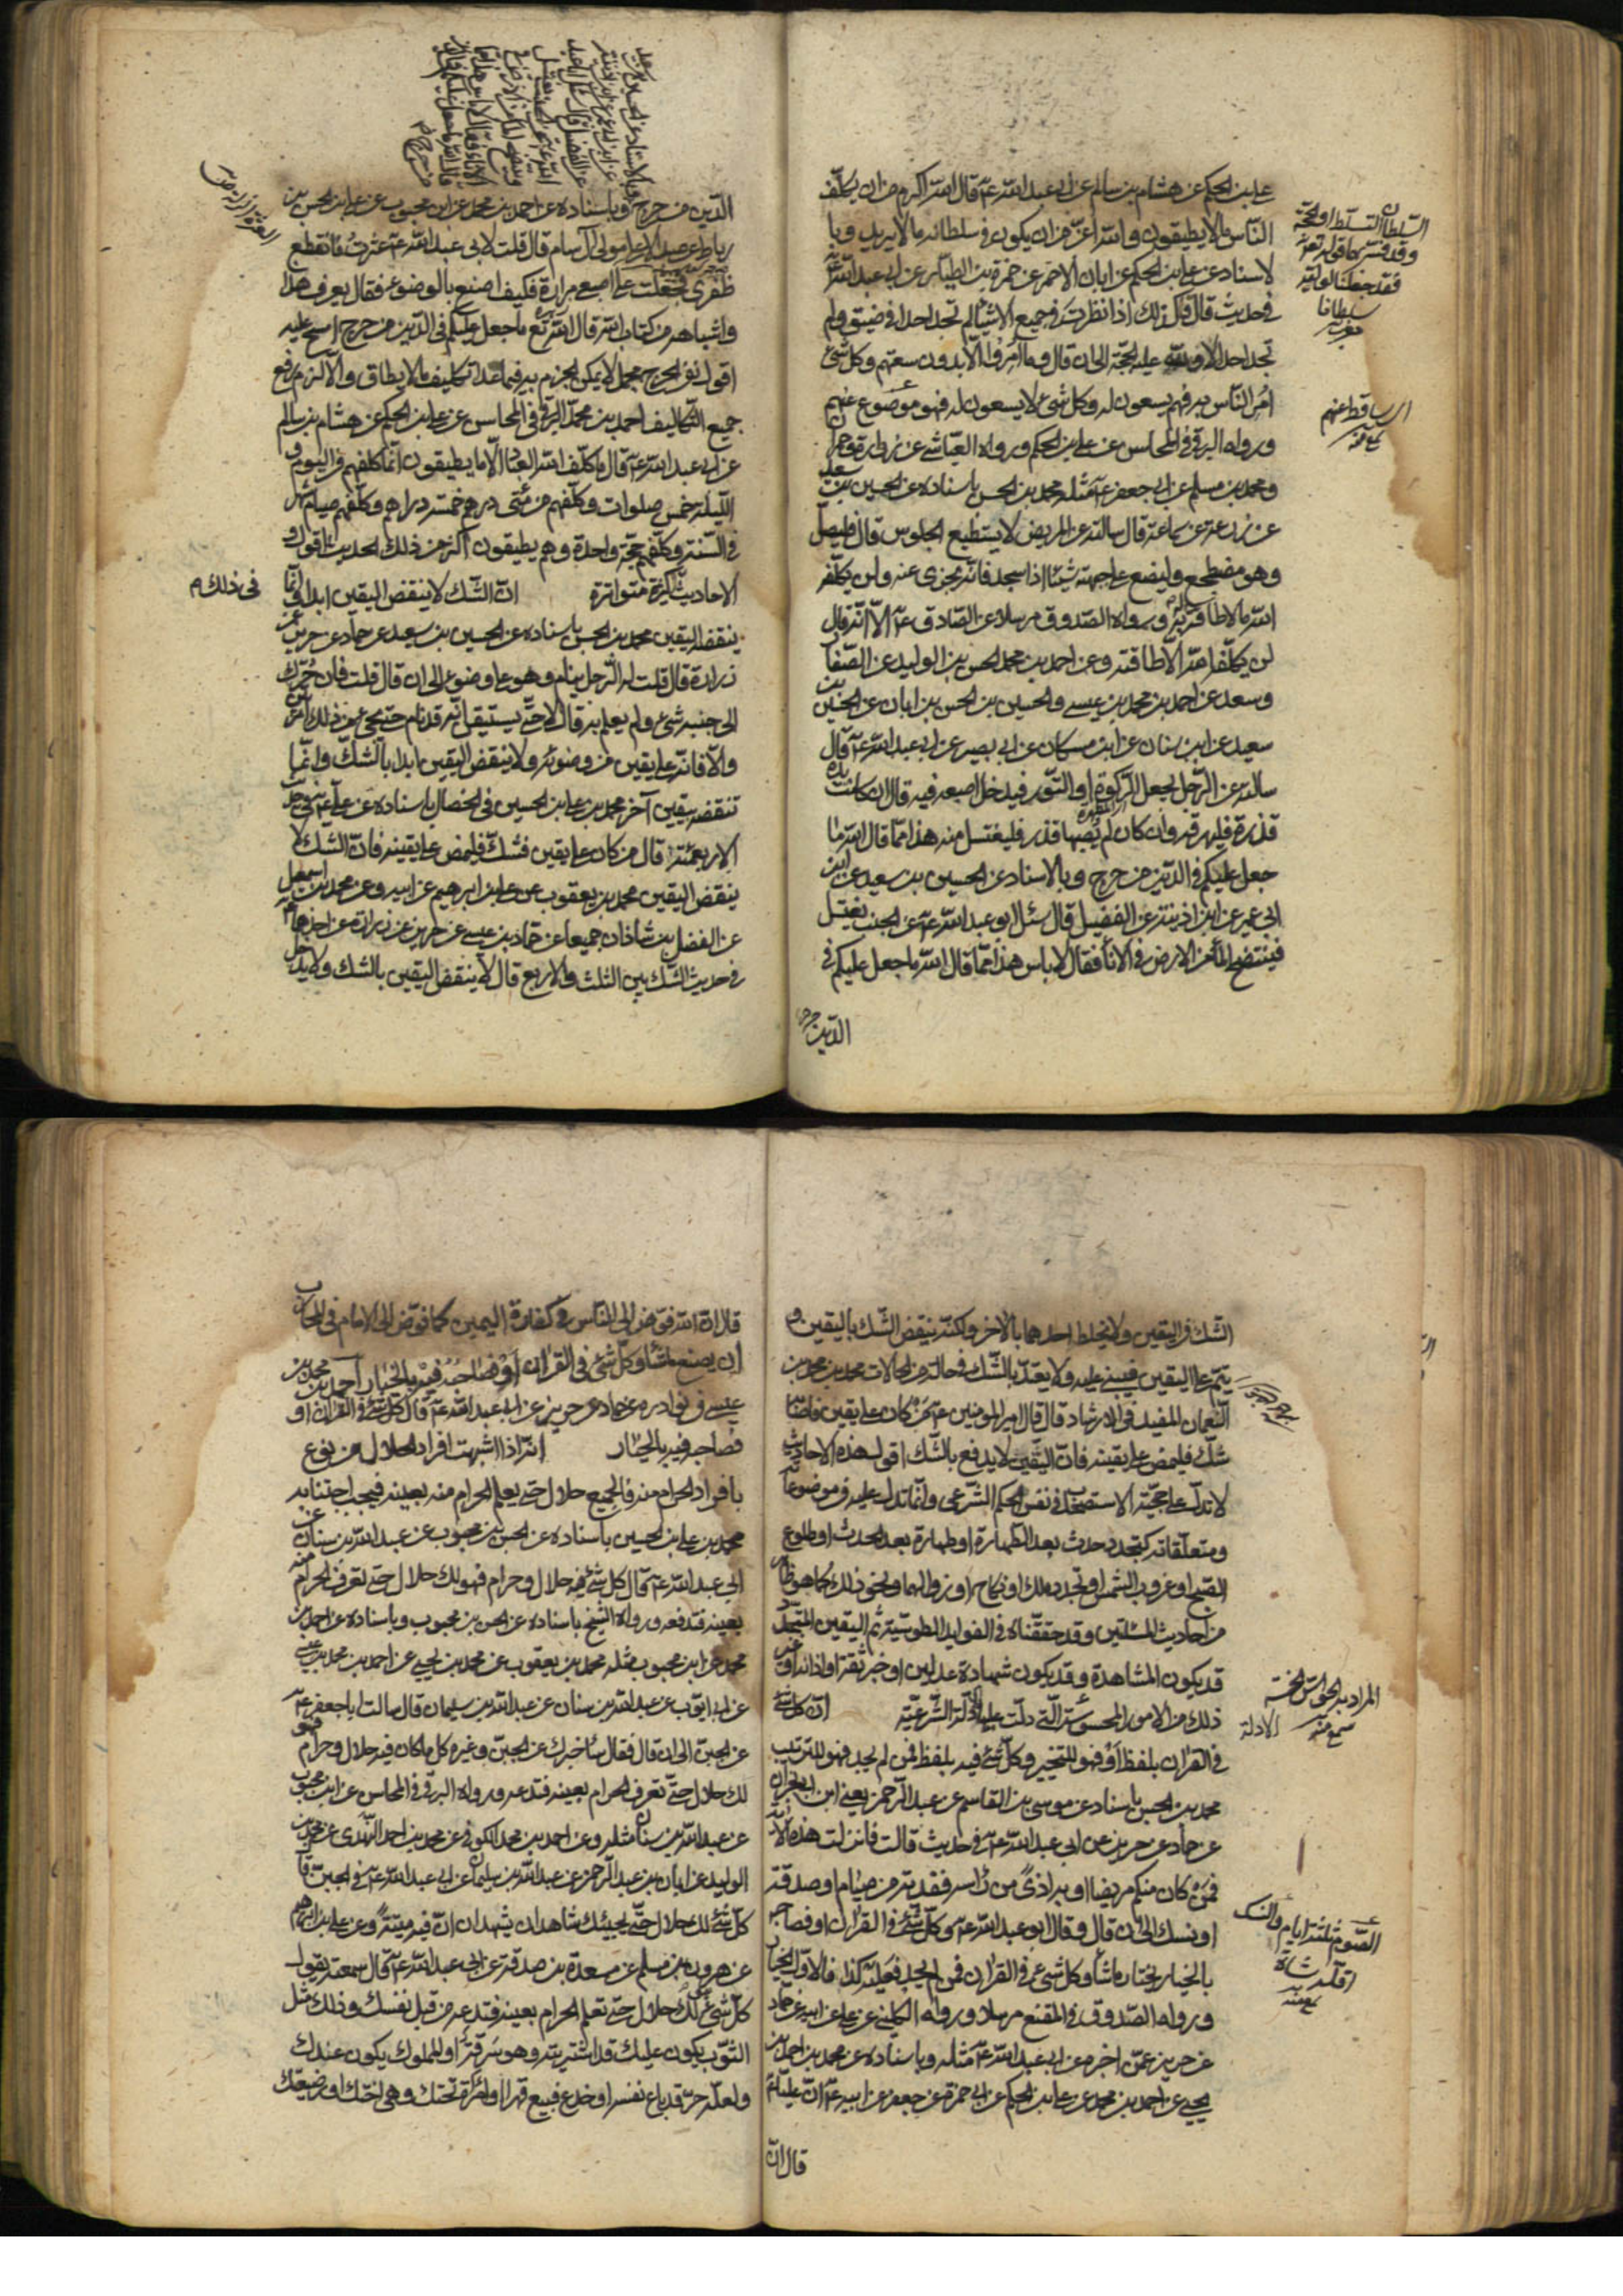 علي بن الحكم عن هشام بن سالم عن ابي عبد الله عـ قال الله اكرم من ان يكلّف
الناس ما لا يطيقون والله اعزّ من ان يكون في سلطانه ما لا يريد وبا
لاسناد عن علي بن الحكم عن ابان الاحمر عن حمزة بن الطيار عن ابي عبد الله عـ
في حديث قال وكذلك اذا نظرت في جميع الاشياء لم تجد احدا في ضيق ولم
تجد احدا الا ولله عليه الحجّة الى ان قال وما امروا الّا بدون سعتهم وكل شئ
امر الناس به فهم يسعون له وكل شئ لا يسعون له فهو موضوع عنهم
ورواه البرقي في المحاسن عن علي بن الحكم ورواه العيّاشي عن زرارة وحمران
ومحمد بن مسلم عن ابي جعفر عـ مثله محمد بن الحسن باسناده عن الحسين بن سعيد
عن زرعة عن سماعة قال سالته عن المريض لا يستطيع الجلوس قال فليصلّ
وهو مضطجع وليضع على جبهته شيئا اذا سجد فانه يجزي عنه ولن يكلّفه
الله ما لا طاقة له به ورواه الصّدوق مرسلا عن الصّادق عـ الّا انّه قال
لن يكلّف الله الا طاقته وعن احمد بن محمد الحسن بن الوليد عن الصّفار
وسعد عن احمد بن محمد بن عيسى والحسين بن الحسن بن ابان عن الحسين بن
سعيد عن ابن سنان عن ابن مسكان عن ابي بصير عن ابي عبد الله عـ قال
سالته عن الرّجل يجعل الركوة او التّور فيدخل اصبعه فيه قال ان كانت يده
قذرة فليهرقه وان كان لم يصبها قذر فليغتسل منه هذا ممّا قال الله ما
جعل عليكم في الدّين من حرج وبالاسناد عن الحسين بن سعيد عن ابن
ابي عمير عن ابن اذينة عن الفضيل قال سئل ابو عبد الله عـ عن الجنب يغتسل
فينتضح الماء من الارض في الاناء فقال لا باس هذا ممّا قال الله ما جعل عليكم في
الدّين من حرج
السّلطان التسلّط او الحجّة
وقد فسّر بهما قوله تعـ
فقد جعلنا لوليّه
سلطانا
اي ساقط عنهم
سمع منه
الدّين من حرج وباسناده عن احمد بن محمد عن ابن محبوب عن علي بن الحسن بن
رباط عن عبد الاعلى مولى آل سام قال قلت لابي عبد الله عـ عثرت فانقطع
ظفري فجعلت على اصبعي مرارة فكيف اصنع بالوضوء فقال يعرف هذا
واشباهه من كتاب الله قال الله تع ما جعل عليكم في الدّين من حرج امسح عليه
اقول نفي الحرج مجمل لا يمكن الجزم به فيما عدا تكليف ما لا يطاق والّا لزم رفع
جميع التّكاليف احمد بن محمد البرقي في المحاسن عن علي بن الحكم عن هشام بن سالم
عن ابي عبد الله عـ قال ما كلّف الله العباد الّا ما يطيقون انّما كلفهم في اليوم و
اللّيلة خمس صلوات وكلّفهم من مئتي درهم خمسة دراهم وكلّفهم صيام شهر
في السّنة وكلّفهم حجّة واحدة وهم يطيقون اكثر من ذلك الحديث اقول و
الاحاديث كثيرة متواترة انّ الشّك لا ينقض اليقين ابدا انّما
في ذلك م
ينقضه اليقين محمد بن الحسن باسناده عن الحسين بن سعيد عن حماد عن حريز عن
زرارة قال قلت له الرّجل ينام وهو على وضوء الى ان قال قلت فان حرّك
الى جنبه شئ ولم يعلم به قال لا حتّى يستيقن انّه قد نام حتى يجئ من ذلك امر
والّا فانّه على يقين من وضوئه ولا ينقض اليقين ابدا بالشّك وانّما
تنقضه بيقين آخر محمد بن علي بن الحسين في الخصال باسناده عن علي عـ في حديث
الاربعمئة قال من كان على يقين فشكّ فليمض على يقينه فانّ الشّك لا
ينقض اليقين محمد بن يعقوب عن علي بن ابراهيم عن ابيه وعن محمد بن اسمعيل
عن الفضل بن شاذان جميعا عن حمّاد بن عيسى عن حريز عن زرارة عن احدهما
في حديث الشّك بين الثلث والاربع قال لا ينقض اليقين بالشك ولا يدخل
الشّك في اليقين ولا يخلط احدهما بالآخر ولكنّه ينقض الشّك باليقين و
يتمّ على اليقين فيبني عليه ولا يعتدّ بالشّك في حال من الحالات محمد بن محمد بن
النّعمان المفيد في الارشاد قال قال امير المومنين عـ من كان على يقين فاصابه
شكّ فليمض على يقينه فانّ اليقين لا يدفع بالشّك اقول هذه الاحاديث
لا تدلّ على حجيّة الاستصحاب في نفس الحكم الشّرعي وانّما تدل عليه في موضوعاته
ومتعلّقاته كتجدد حدث بعد الطّهارة او طهارة بعد الحدث او طلوع
الصّبح او غروب الشّمس او تجدد ملك او نكاح او زوالهما ونحو ذلك كما هو ظاهر
من احاديث المسئلتين وقد حققناه في الفوايد الطوسيّة ثم اليقين المتجدّد
قد يكون المشاهدة وقد يكون شهادة عدلين او خبر ثقة او اذانه او غير
ذلك من الامور المحسوسة الّتي دلّت عليها الادلّة الشّرعيّة انّ كل شئ
في القران بلفظ او فهو للتخيير وكلّ شئ فيه بلفظ فمن لم يجد فهو للترتيب
محمد بن الحسن باسناده عن موسى بن القاسم عن عبد الرّحمن يعني ابن ابي نجران
عن حماد عن حريز عن ابي عبد الله عـ في حديث قالت فانزلت هذه الآية
فمن كان منكم مريضا او به اذى من راسه ففدية من صيام او صدقة
او نسك الى ان قال وقال ابو عبد الله عـ وكلّ شئ في القران او فصاحبه
بالخيار يختار ما شاء وكل شئ في القران فمن لم يجد فعليه كذا فالاول الخيار
ورواه الصّدوق في المقنع مرسلا ورواه الكليني عن علي عن ابيه عن حماد
عن حريز عمّن اخبره عن ابي عبد الله عـ مثله وباسناده عن محمد بن احمد بن
يحيى عن احمد بن محمد عن علي بن الحكم عن ابي حمزة عن جعفر عن ابيه عـ انّ عليّا عـ
قال انّ
المراد به الحواس الخمسة
سمع منه
الادلة
الصّوم ثلثة ايام والنسك
اقله شاة
سمع منه
قال انّ الله فوّض الى النّاس في كفارة اليمين كما فوّض الى الامام في المحارب
ان يصنع ما شاء وكل شئ في القران او فصاحبه فيه بالخيار احمد بن محمد بن
عيسى في نوادره عن حماد عن حريز عن ابي عبد الله عـ قال كل شئ في القران او
فصاحبه فيه بالخيار انّه اذا اشبهت افراد الحلال من نوع
بافراد الحرام منه فالجميع حلال حتى يعلم الحرام منه بعينه فيجب اجتنابه
محمد بن علي بن الحسين باسناده عن الحسن بن محبوب عن عبد الله بن سنان عن
ابي عبد الله عـ قال كل شئ فيه حلال وحرام فهو لك حلال حتى تعرف الحرام منه
بعينه فتدعه ورواه الشيخ باسناده عن الحسن بن محبوب وباسناده عن احمد بن
محمد عن ابن محبوب مثله محمد بن يعقوب عن محمد بن يحيى عن احمد بن محمد بن عيسى
عن ابي ايوب عن عبد الله بن سنان عن عبد الله بن سليمان قال سالت ابا جعفر عـ
عن الجبن الى ان قال فقال ساخبرك عن الجبن وغيره كل ما كان فيه حلال وحرام فهو
لك حلال حتّى تعرف الحرام بعينه فتدعه ورواه البرقي في المحاسن عن ابن محبوب
عن عبد الله بن سنان مثله وعن احمد بن محمد الكوفي عن محمد بن احمد النّهدي عن محمد بن
الوليد عن ابان بن عبد الرّحمن عن عبد الله بن سليمان عن ابي عبد الله عـ في الجبن قال
كلّ شئ لك حلال حتّى يجيئك شاهدان يشهدان انّ فيه ميتة وعن علي بن ابراهيم
عن هرون بن مسلم عن مسعدة بن صدقة عن ابي عبد الله عـ قال سمعته يقول
كلّ شئ هو لك حلال حتى تعلم الحرام بعينه فتدعه من قبل نفسك وذلك مثل
الثّوب يكون عليك قد اشتريته وهو سرقة او المملوك يكون عندك
ولعلّه حرّ قد باع نفسه او خدع فبيع قهرا او امراة تحتك وهي اختك او رضيعتك